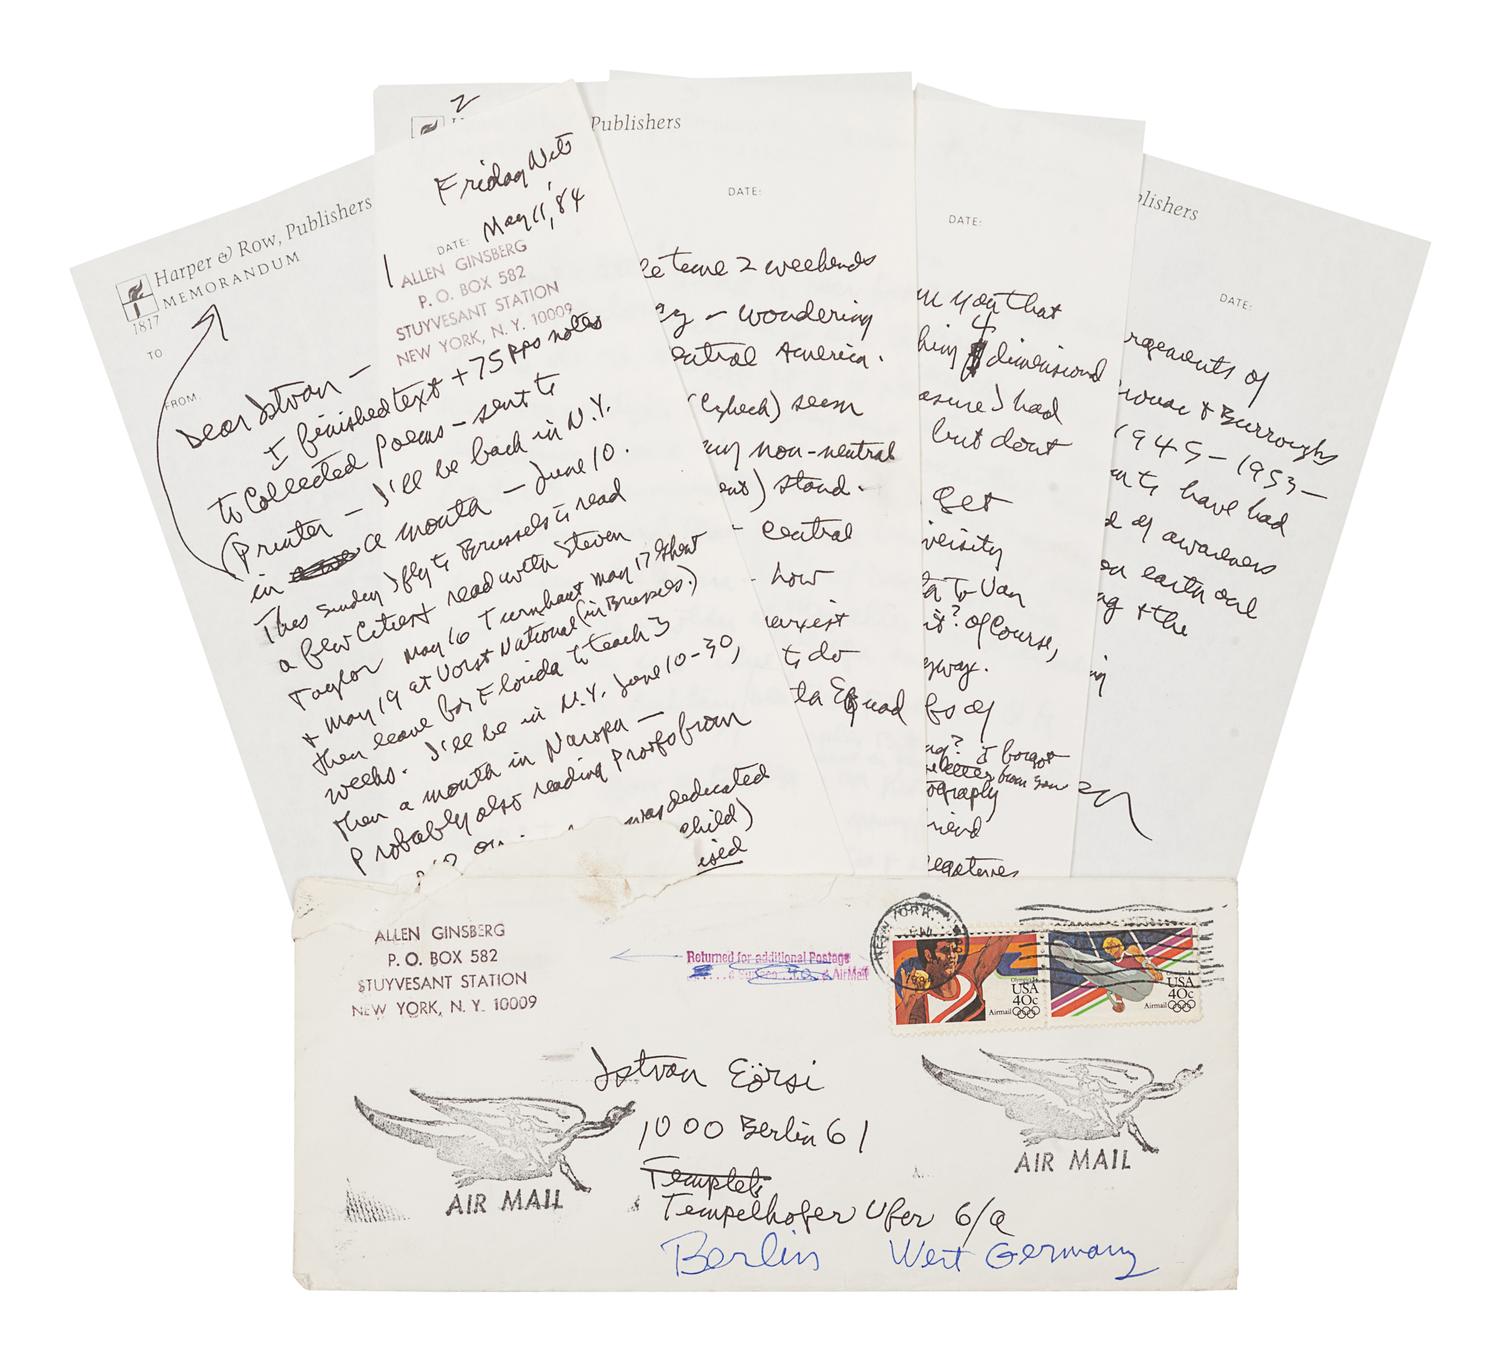 Harper & Row, Publishers
MEMORANDUM
1817
TO
FROM
Friday Nite
May 11, '84
DATE:
1
ALLEN GINSBERG
P. O. BOX 582
STUYVESANT STATION
NEW YORK, N. Y. 10009
Dear Istvan —
I finished text + 75 pps notes
to Collected Poems — sent to
(Printer — I'll be back in N.Y.
in a month — June 10.
This Sunday I fly to Brussels to read
a few Cities & read with Steven
Taylor May 16 Turnhout May 17 Ghent
& May 19 at Vorst National (in Brussels.)
then leave for Florida to teach 3
weeks. I'll be in N.Y. June 10-30,
then a month in Naropa —
Probably also reading Proofs from
was dedicated
child)
2
Publishers
DATE:
2 weekends
— wondering
Central America.
(Czech) seem
non-neutral
stand.
— Central
how
to do
DATE:
you that
4
dimensional
I had
but don't
get
to Van
it? Of course,
of
? I forgot
letter from you
blishers
DATE:
of
& Burroughs
1945-1953—
to have had
of awareness
on earth and
& the
ALLEN GINSBERG
P. O. BOX 582
STUYVESANT STATION
NEW YORK, N. Y. 10009
Returned for additional Postage
AirMail
NEW YORK
USA
40c
Airmail
USA
40c
Airmail
Istvan Eörsi
1000 Berlin 61
Templeh
Tempelhofer Ufer 6/a
Berlin West Germany
AIR MAIL
AIR MAIL